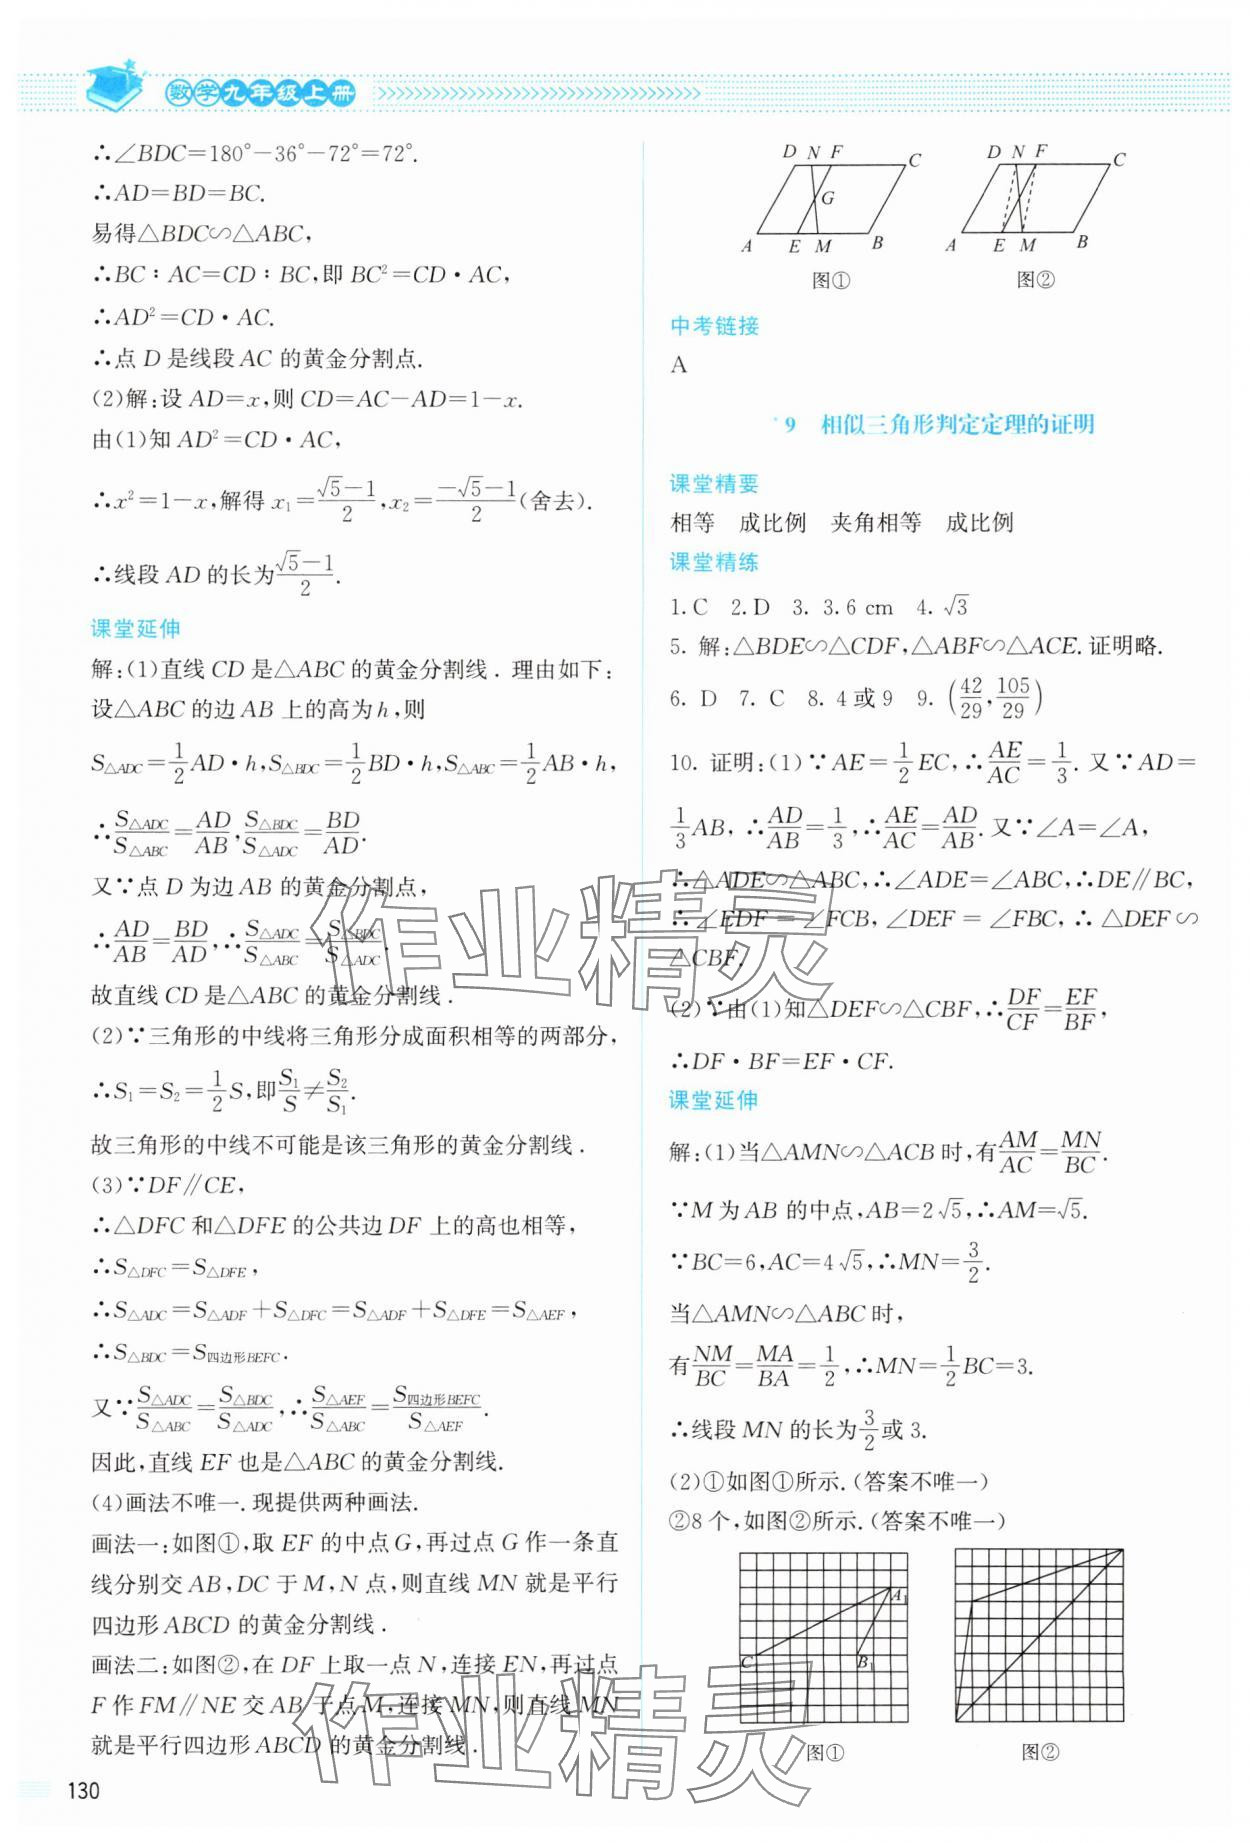 数学九年级上册
∴∠BDC=180°-36°-72°=72°.
∴AD=BD=BC.
易得△BDC∽△ABC,
∴BC∶AC=CD∶BC,即BC²=CD·AC,
∴AD²=CD·AC.
∴点D是线段AC的黄金分割点.
(2)解:设AD=x,则CD=AC-AD=1-x.
由(1)知AD²=CD·AC,
∴x²=1-x,解得x₁=(√5-1)/2,x₂=(-√5-1)/2(舍去).
∴线段AD的长为(√5-1)/2.
课堂延伸
解:(1)直线CD是△ABC的黄金分割线.理由如下:
设△ABC的边AB上的高为h,则
S△ADC=1/2AD·h,S△BDC=1/2BD·h,S△ABC=1/2AB·h,
∴S△ADC/S△ABC=AD/AB,S△BDC/S△ADC=BD/AD.
又∵点D为边AB的黄金分割点,
∴AD/AB=BD/AD,∴S△ADC/S△ABC=S△BDC/S△ADC.
故直线CD是△ABC的黄金分割线.
(2)∵三角形的中线将三角形分成面积相等的两部分,
∴S₁=S₂=1/2S,即S₁/S≠S₂/S₁.
故三角形的中线不可能是该三角形的黄金分割线.
(3)∵DF∥CE,
∴△DFC和△DFE的公共边DF上的高也相等,
∴S△DFC=S△DFE,
∴S△ADC=S△ADF+S△DFC=S△ADF+S△DFE=S△AEF,
∴S△BDC=S四边形BEFC.
又∵S△ADC/S△ABC=S△BDC/S△ADC,∴S△AEF/S△ABC=S四边形BEFC/S△AEF.
因此,直线EF也是△ABC的黄金分割线.
(4)画法不唯一.现提供两种画法.
画法一:如图①,取EF的中点G,再过点G作一条直
线分别交AB,DC于M,N点,则直线MN就是平行
四边形ABCD的黄金分割线.
画法二:如图②,在DF上取一点N,连接EN,再过点
F作FM∥NE交AB于点M,连接MN,则直线MN
就是平行四边形ABCD的黄金分割线.
130
D N F C
G
A E M B
图①
D N F C
A E M B
图②
中考链接
A
9 相似三角形判定定理的证明
课堂精要
相等 成比例 夹角相等 成比例
课堂精练
1.C 2.D 3.3.6 cm 4.√3
5.解:△BDE∽△CDF,△ABF∽△ACE.证明略.
6.D 7.C 8.4或9 9.(42/29,105/29)
10.证明:(1)∵AE=1/2EC,∴AE/AC=1/3.又∵AD=
1/3AB,∴AD/AB=1/3,∴AE/AC=AD/AB.又∵∠A=∠A,
∴△ADE∽△ABC,∴∠ADE=∠ABC,∴DE∥BC,
∴∠EDF=∠FCB,∠DEF=∠FBC,∴△DEF∽
△CBF.
(2)∵由(1)知△DEF∽△CBF,∴DF/CF=EF/BF,
∴DF·BF=EF·CF.
课堂延伸
解:(1)当△AMN∽△ACB时,有AM/AC=MN/BC.
∵M为AB的中点,AB=2√5,∴AM=√5.
∵BC=6,AC=4√5,∴MN=3/2.
当△AMN∽△ABC时,
有NM/BC=MA/BA=1/2,∴MN=1/2BC=3.
∴线段MN的长为3/2或3.
(2)①如图①所示.(答案不唯一)
②8个,如图②所示.(答案不唯一)
A₁
C₁
B₁
图①
图②
作业精灵
作业精灵